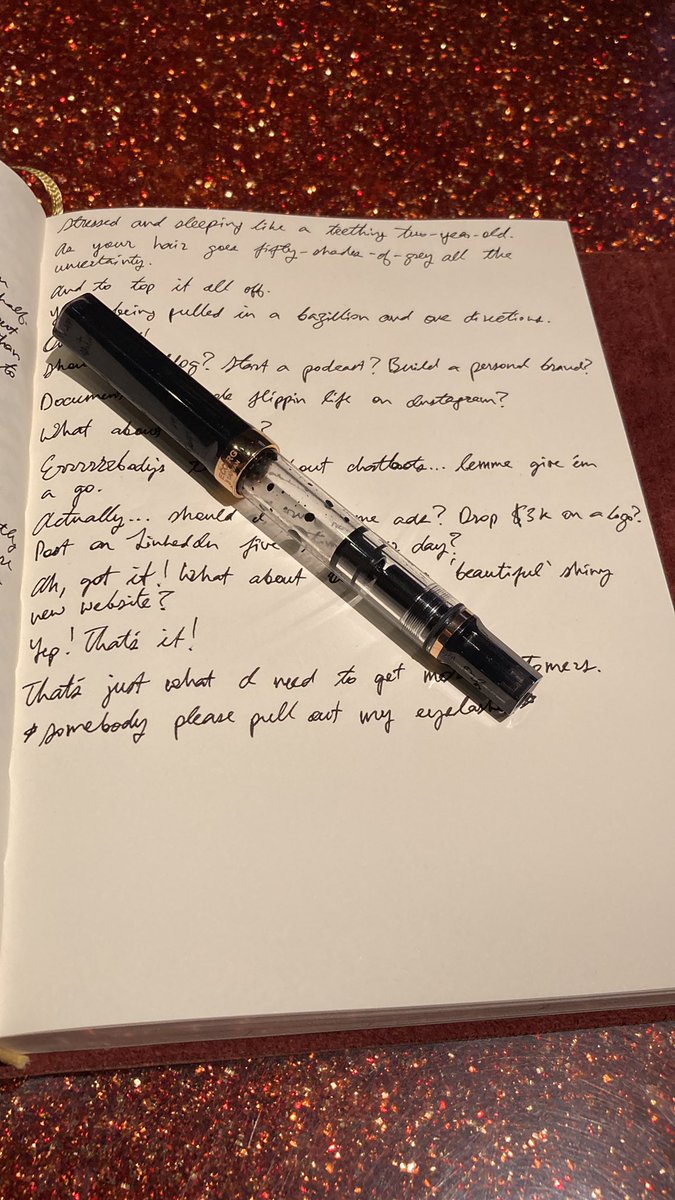 stressed and sleeping like a teething two-year-old.
As your hair goes fifty-shades-of-grey all the
uncertainty.
And to top it all off.
being pulled in a bazillion and one directions.
blog? Start a podcast? Build a personal brand?
flippin life on Instagram?
What about ?
Errrrrebody's out chatbots... lemme give 'em
a go.
Actually... should me ads? Drop $3k on a logo?
Post on LinkedIn five day?
Ah, got it! What about 'beautiful' shiny
new website?
Yep! That's it!
That's just what I need to get
*somebody please pull out my